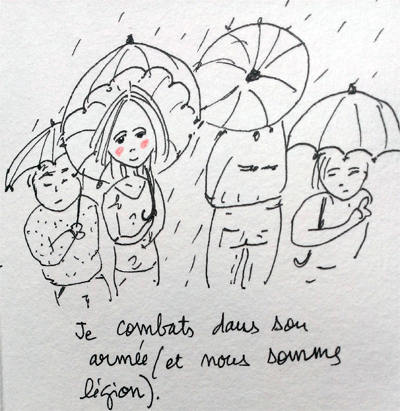 Je combats dans son
armée (et nous somme
légion).